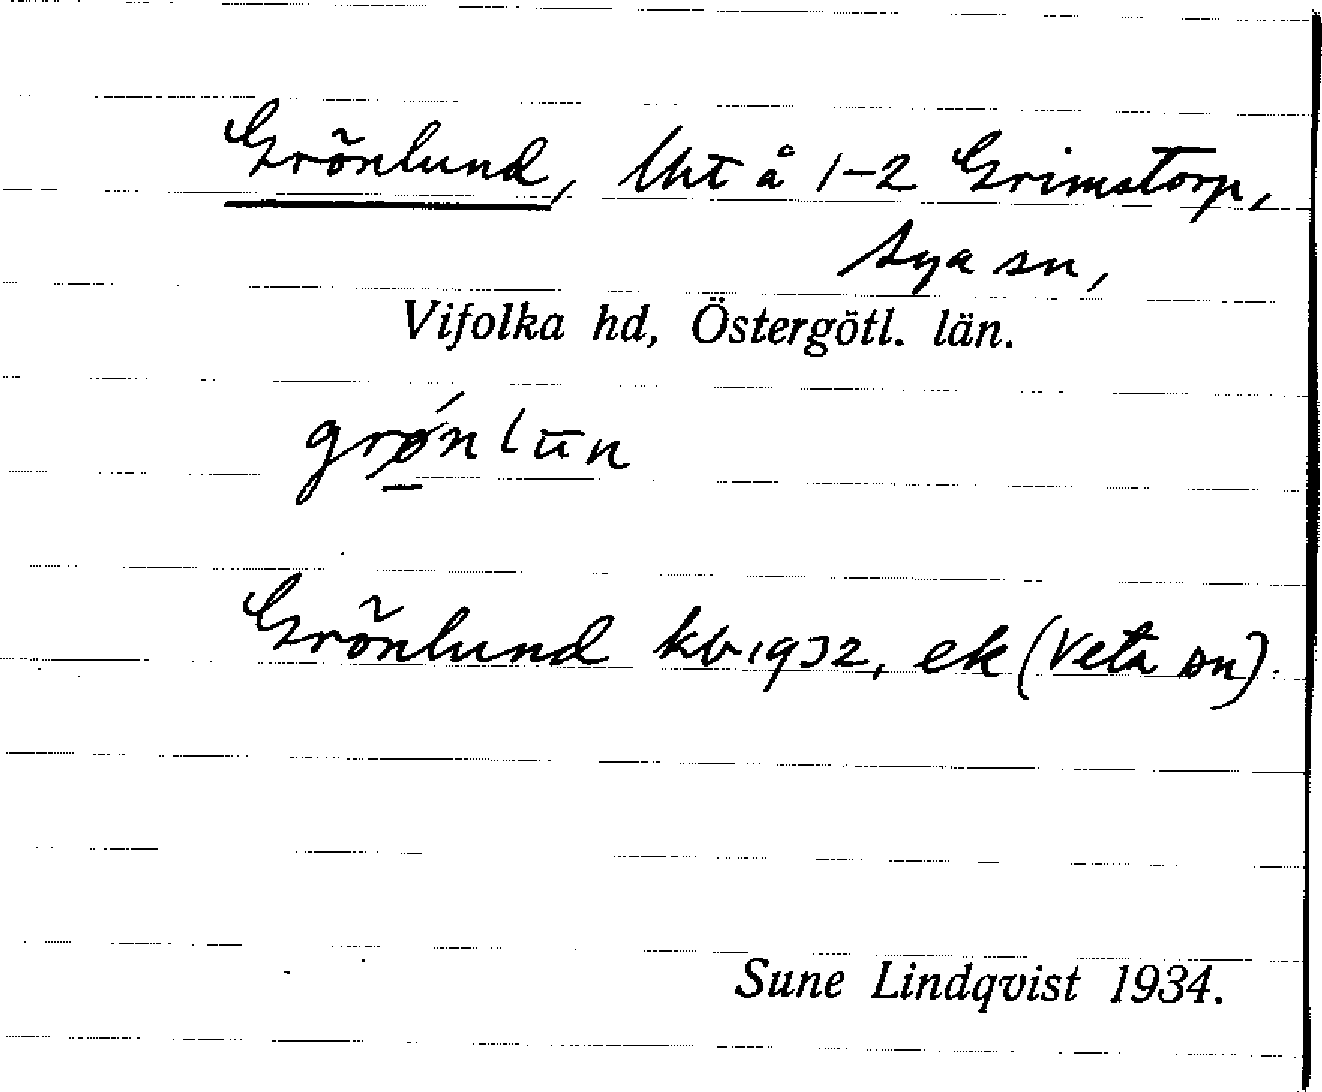 Grönlund, lht å 1-2 Grimstorp,
Sya sn,
Vifolka hd, Östergötl. län.
grǿnlūn
Grönlund kb 1932, ek (Veta sn).
Sune Lindqvist 1934.